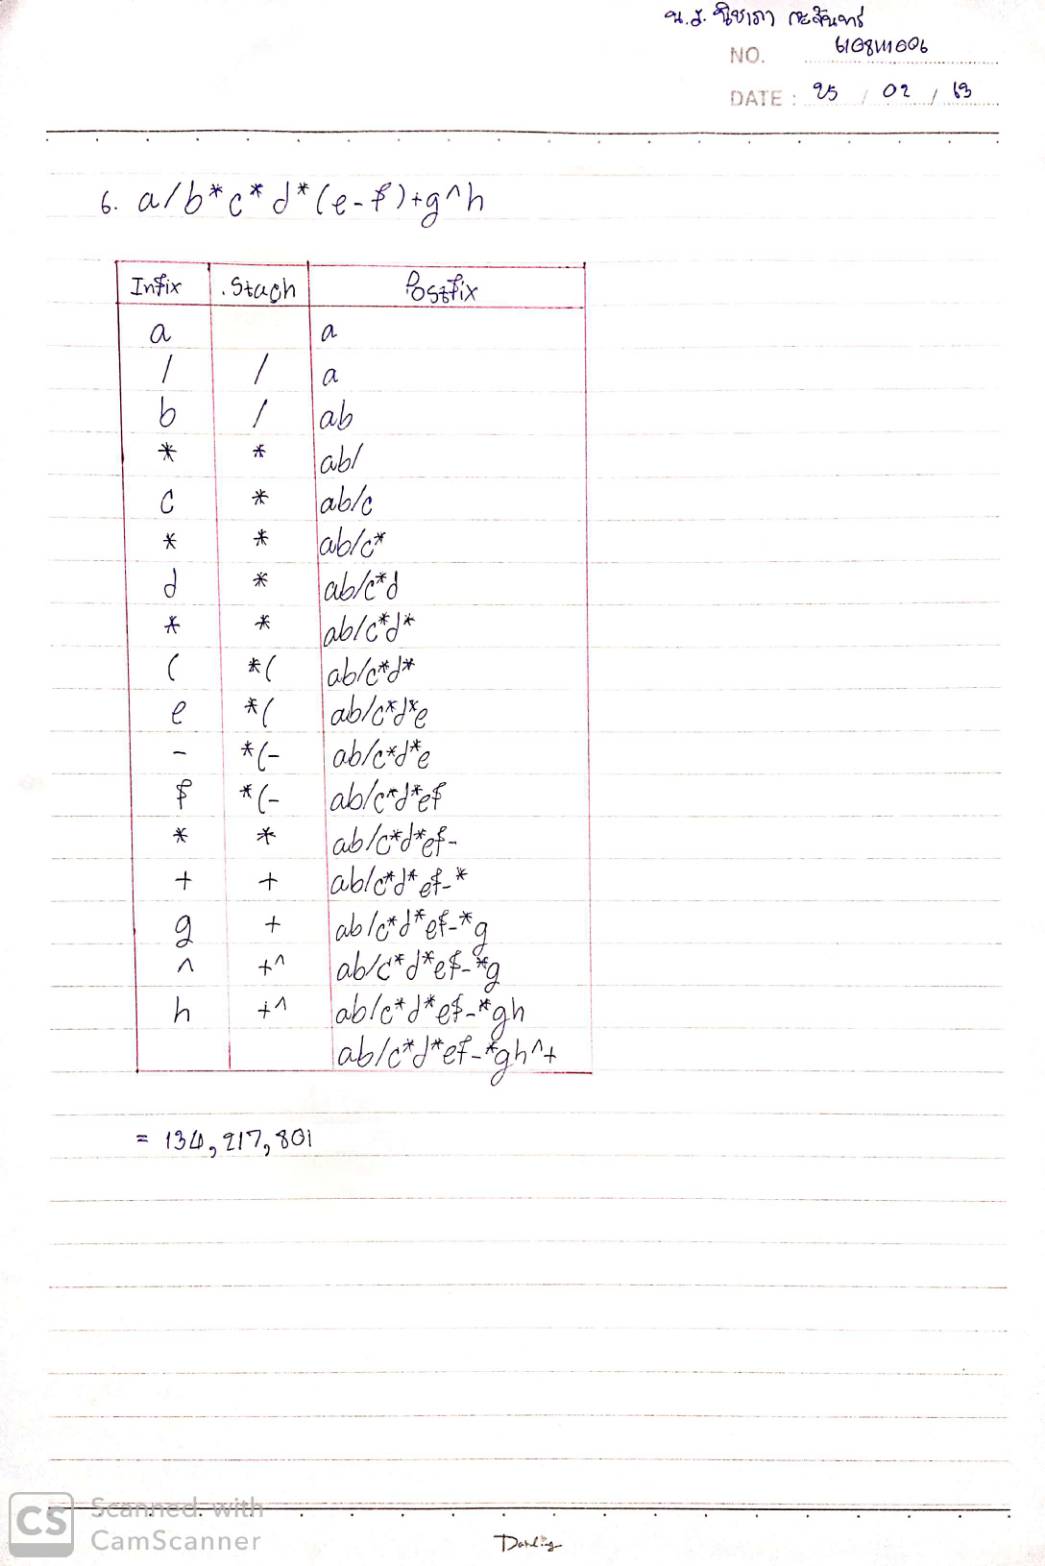 น.ส. นิชาภา กะจันทร์
NO. 6108111006
DATE : 25 / 02 / 63
6. a/b*c*d*(e-f)+g^h
Infix Stack Postfix
a a
/ / a
b / ab
* * ab/
c * ab/c
* * ab/c*
d * ab/c*d
* * ab/c*d*
( *( ab/c*d*
e *( ab/c*d*e
- *(- ab/c*d*e
f *(- ab/c*d*ef
* * ab/c*d*ef-
+ + ab/c*d*ef-*
g + ab/c*d*ef-*g
^ +^ ab/c*d*ef-*g
h +^ ab/c*d*ef-*gh
ab/c*d*ef-*gh^+
= 134,217,801
CS Scanned with
CamScanner
Darling